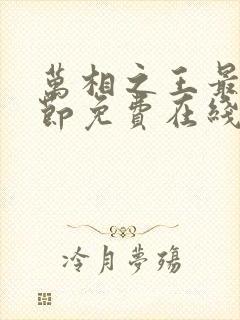 萬相之王最
節免費在綫
冷月夢殤